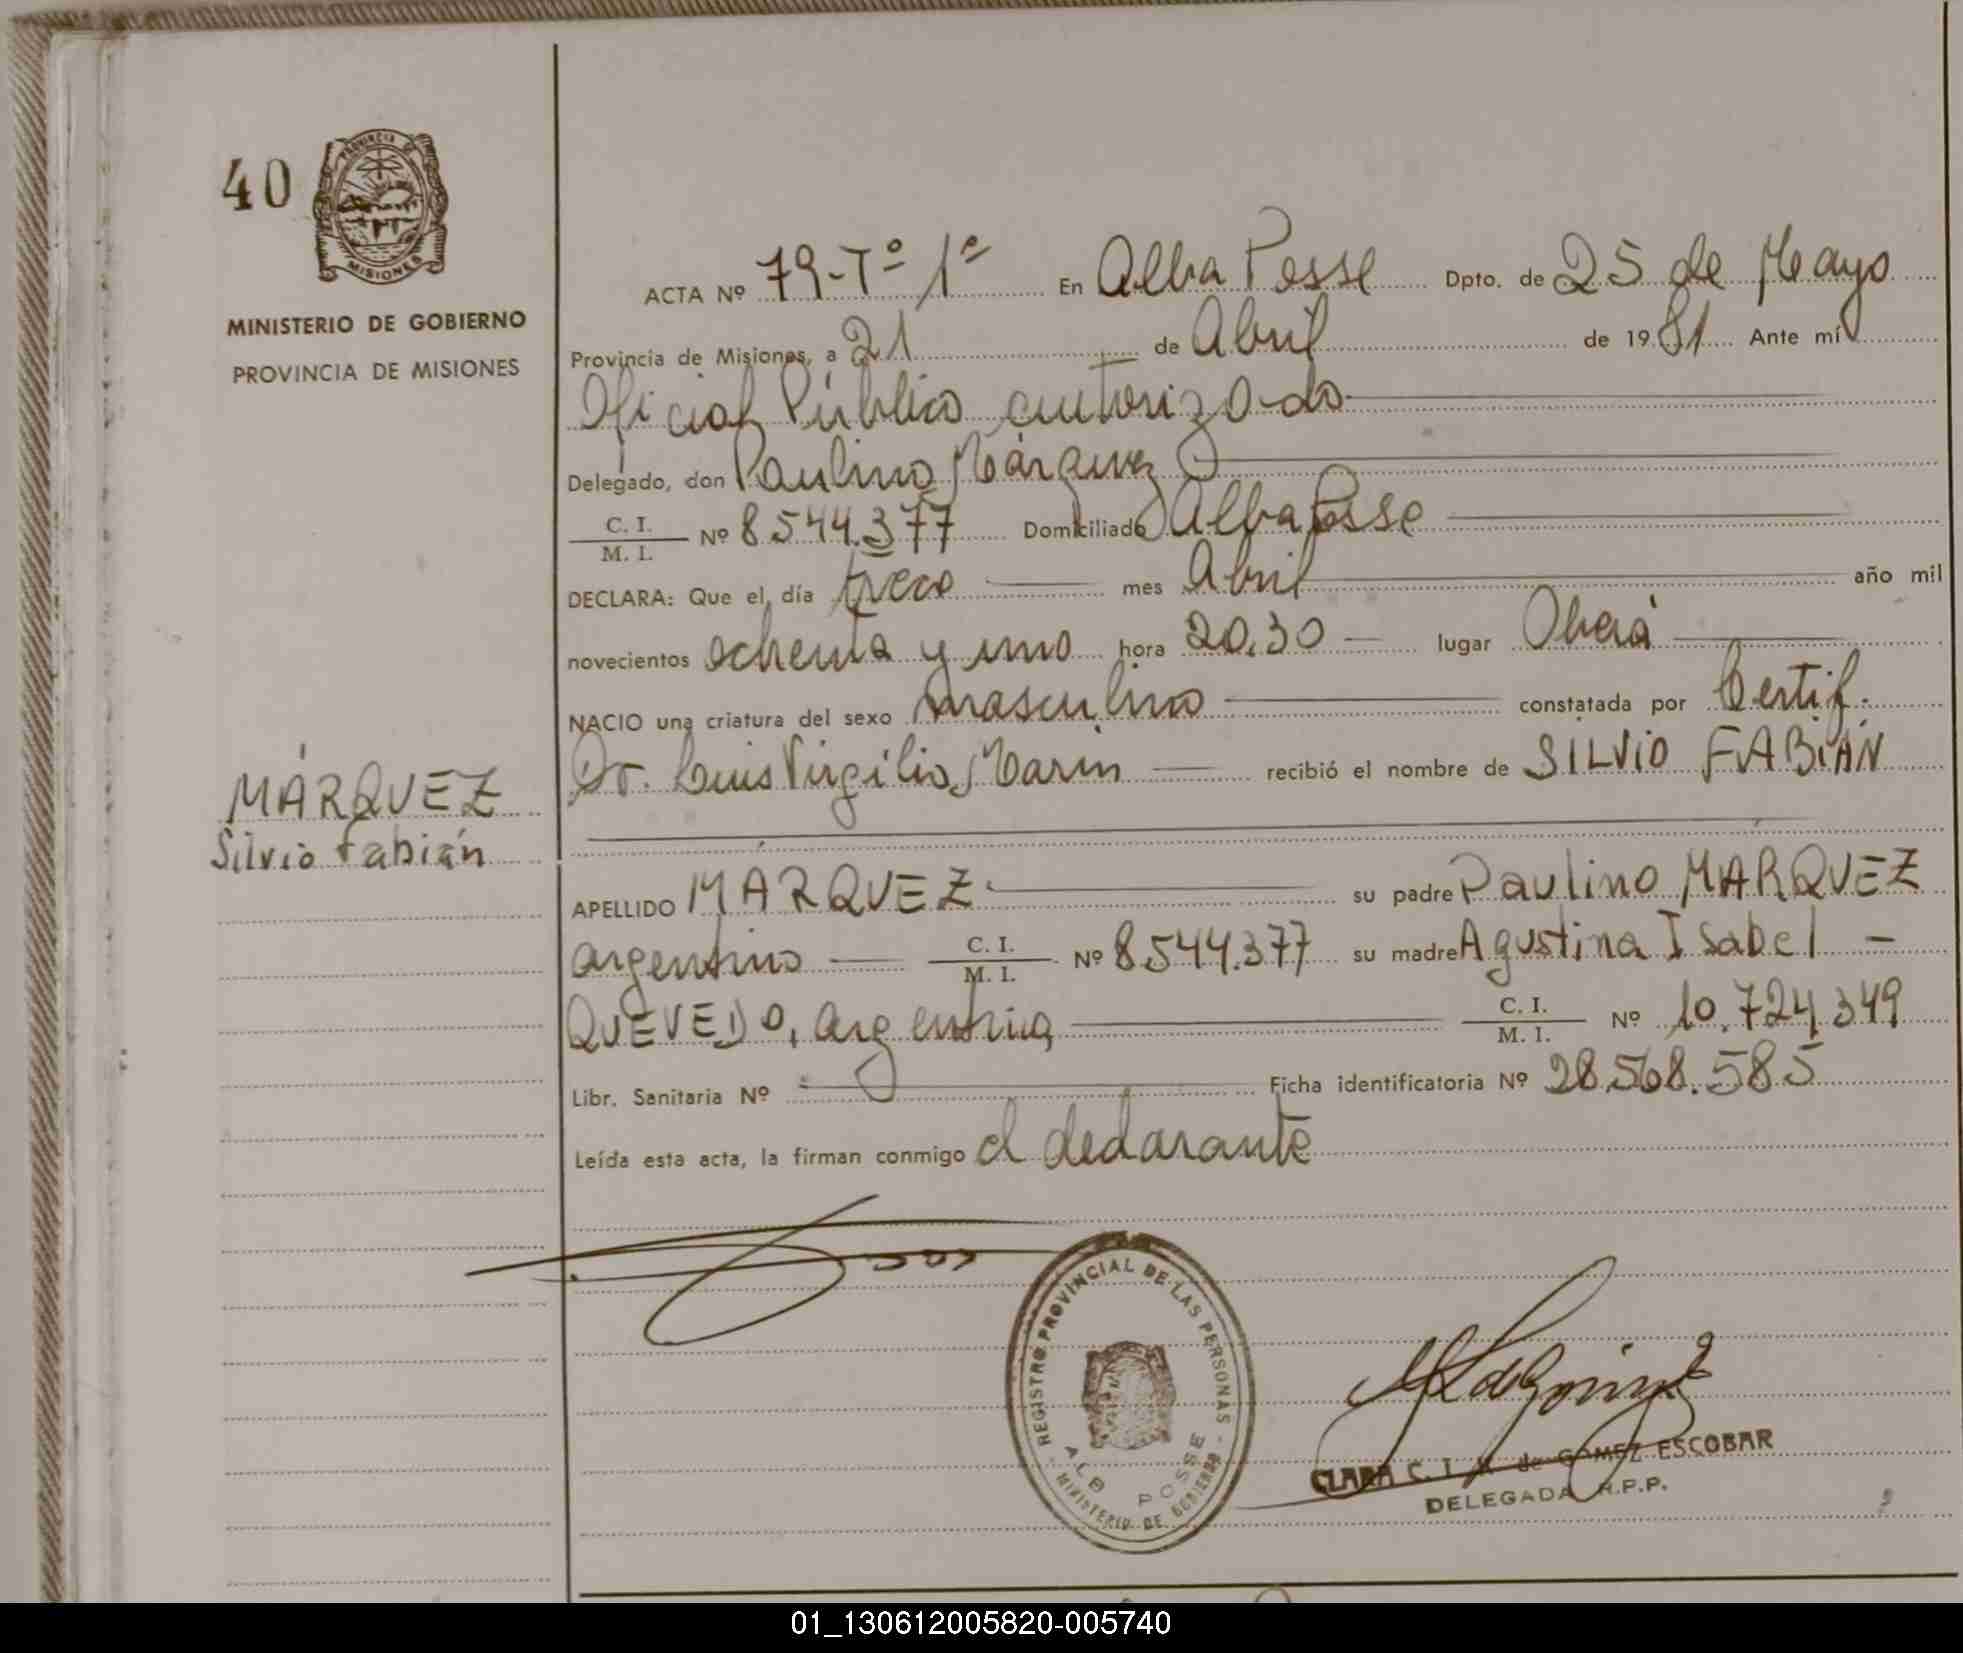 40
PROVINCIA DE
MISIONES
MINISTERIO DE GOBIERNO
PROVINCIA DE MISIONES
MÁRQUEZ
Silvio Fabián
ACTA Nº 79-Tº 1º En Alba Posse Dpto. de 25 de Mayo
Provincia de Misiones, a 21 de Abril de 1981 Ante mí
Oficial Público autorizado
Delegado, don Paulino Márquez
C. I.
M. I. Nº 8.544.377 Domiciliado Alba Posse
DECLARA: Que el día trece mes Abril año mil
novecientos ochenta y uno hora 20,30 lugar Oberá
NACIO una criatura del sexo masculino constatada por Certif.
Dr. Luis Virgilio Marin recibió el nombre de SILVIO FABIÁN
APELLIDO MÁRQUEZ su padre Paulino MÁRQUEZ
argentino C. I.
M. I. Nº 8.544.377 su madre Agustina Isabel
QUEVEDO, argentina C. I.
M. I. Nº 10.724.349
Libr. Sanitaria Nº Ficha identificatoria Nº 28.568.585
Leída esta acta, la firman conmigo el declarante
REGISTRO PROVINCIAL DE LAS PERSONAS
ALB POSSE
- MINISTERIO DE GOBIERNO -
CLARA C. T. de GOMEZ ESCOBAR
DELEGADA R.P.P.
01_130612005820-005740